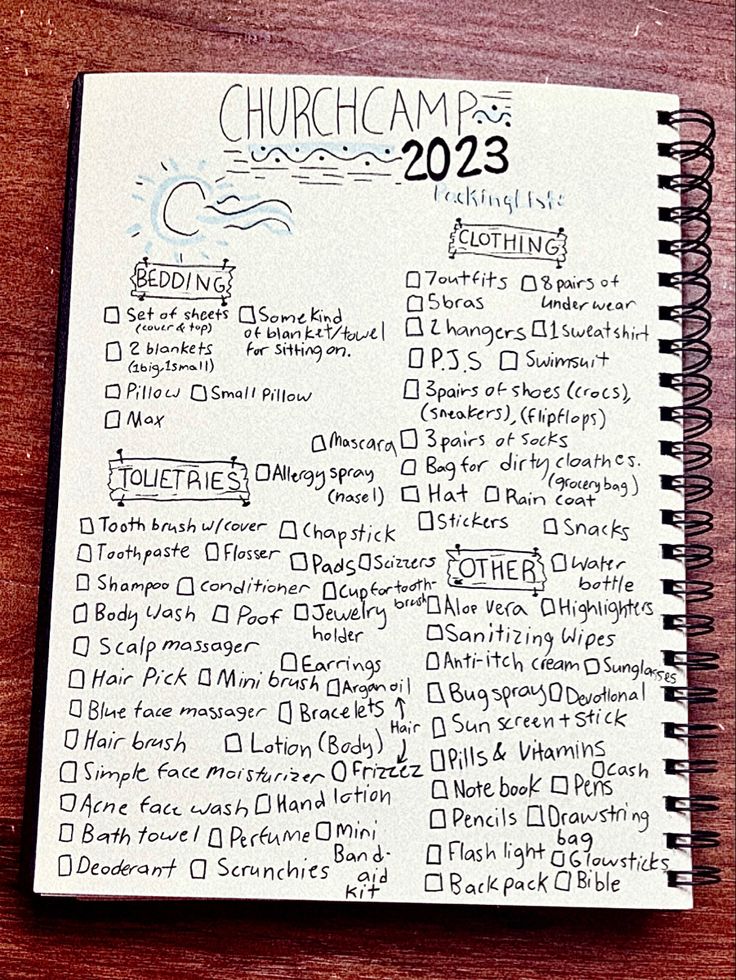 CHURCHCAMP
2023
PackingList
BEDDING
Set of sheets
(cover & top)
Some kind
of blanket/towel
for sitting on.
2 blankets
(1big,1small)
Pillow
Small Pillow
Max
CLOTHING
7outfits
8 pairs of
underwear
5bras
2 hangers
1sweatshirt
P.J.S
Swimsuit
3pairs of shoes (crocs),
(sneakers), (flipflops)
3 pairs of socks
Bag for dirty cloathes.
(grocery bag)
Hat
Rain coat
Stickers
Snacks
TOLIETRIES
Mascara
Allergy spray
(nasel)
Tooth brush w/cover
Chapstick
Toothpaste
Flosser
Pads
Scizzers
Shampoo
conditioner
Cup for tooth-
brush
Body Wash
Poof
Jewelry
holder
Scalp massager
Earrings
Hair Pick
Mini brush
Argan oil
Blue face massager
Bracelets
Hair
Hair brush
Lotion (Body)
Simple face moisturizer
Frizzez
Acne face wash
Hand lotion
Bath towel
Perfume
Mini
Band-
aid
kit
Deoderant
Scrunchies
OTHER
Water
bottle
Aloe vera
Highlighters
Sanitizing Wipes
Anti-itch cream
Sunglasses
Bug spray
Devotional
Sun screen + stick
Pills & Vitamins
Cash
Note book
Pens
Pencils
Drawstring
bag
Flash light
Glowsticks
Back pack
Bible